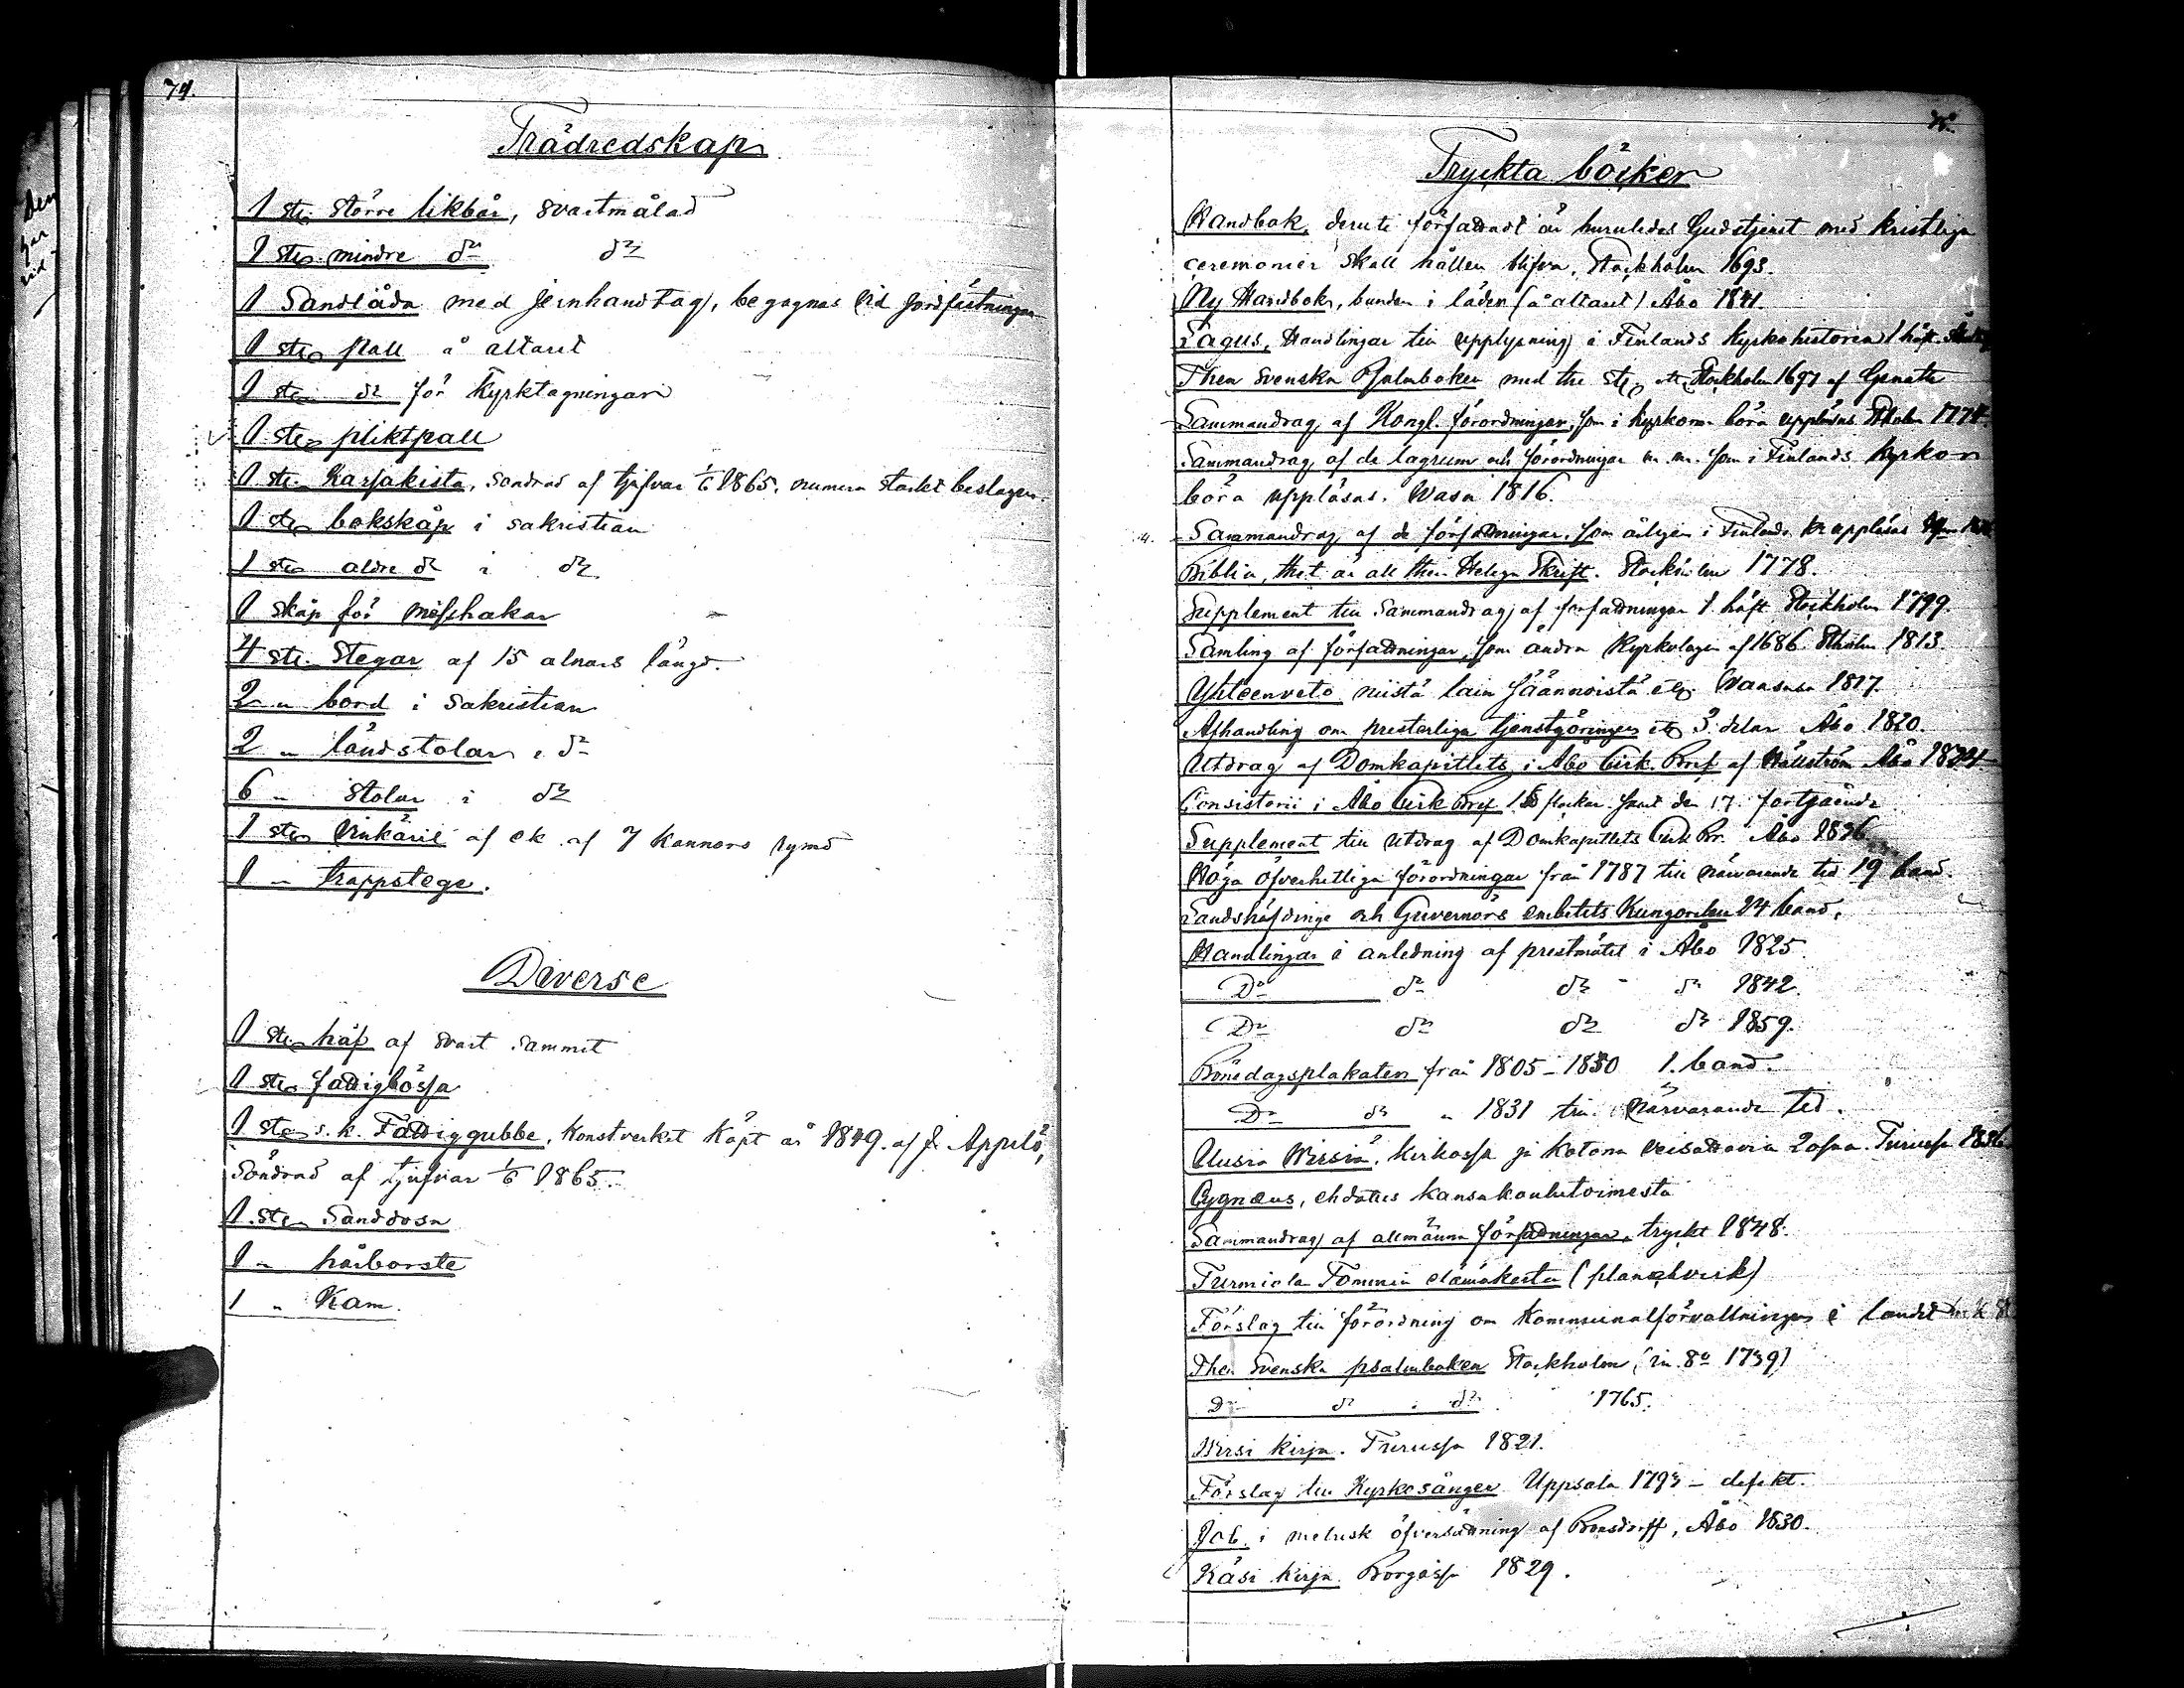 74.
Trädredskap
1 st. större likbår, svartmålad
1 st. mindre do do
1 Sandlåda med jernhandtag, begagnas vid jordfästningar
1 st. pall å altaret
1 st. do för Kyrktagningar
1 st. pliktpall
1 st. Kassakista, söndrad af tjufvar 1/6 1865, numera starkt beslagen.
1 st. bokskåp i sakristian
1 st. äldre do i do
1 skåp för mässhakar
4 st. Stegar af 15 alnars längd.
2 " bord i Sakristian
2 " länstolar i do
6 " Stolar i do
1 st. Vinkäril af ek af 7 Kannors rymd
1 " trappstege.
Diverse
1 st. håf af svart sammet
1 st. fattigbössa
1 st. s. k. Fattiggubbe, Konstverket Köpt år 1849 af J. Appelö,
Söndrad af tjufvar 1/6 1865.
1 st. Sanddosa
1 " hårborste
1 " Kam.
Den
har
vid
75.
Tryckta böcker
Handbok, deruti författadt är huruledes Gudstjenst med kristliga
ceremonier skall hållen blifva, Stockholm 1693.
Ny Handbok, bunden i läder (å altaret) Åbo 1841.
Lagus, Handlingar till upplysning i Finlands Kyrkohistoria 1 häft.
Then Svenska Psalmboken med the st. etc. Stockholm 1697 af Genath
Sammandrag af Kongl. förordningar, som i kyrkorna böra uppläsas Stholm 1774.
Sammandrag af de lagrum och förordningar m. m. som i Finlands kyrkor
böra uppläsas. Wasa 1816.
Sammandrag af de författningar, som årligen i Finlands k. uppläsas
Biblia, thet är all then Heliga Skrift. Stockholm 1778.
Supplement till Sammandrag af författningar 1. häft Stockholm 1799.
Samling af författningar, som ändra Kyrkolagen af 1686. Stholm 1813.
Yhteenveto niistä lain säännoistä etc. Waasasa 1817.
Afhandling om presterliga tjenstgöringen etc. 3 delar Åbo 1820.
Utdrag af Domkapitlets i Åbo Cirk. Bref af Hällström Åbo 1824
Consistorii i Åbo Cirk Bref 16 flockar samt den 17. fortgående
Supplement till Utdrag af Domkapitlets Cirk Br. Åbo 1836
Höga öfverhetliga förordningar från 1787 till närvarande tid 19 band.
Landshöfdinge och Guvernörs embetets Kungörelser 24 band.
Handlingar i anledning af prestmötet i Åbo 1825.
Do do do do 1842.
Do do do do 1859.
Bönedagsplakaten från 1805–1830 1. band.
Do do " 1831 till närvarande tid.
Uusia Wirsiä, kirkossa ja kotona veisattavia 2 osaa. Turussa 1836
Cygnæus, ehdotus kansakoulutoimesta
Sammandrag af allmänna författningar, tryckt 1848.
Turmiola Tommin elämäkerta (planchverk)
Förslag till förordning om Kommunalförvaltningen å landet
Then Svenska psalmboken Stockholm (in 8o 1739)
Do do do 1765.
Wirsi kirja. Turussa 1821.
Förslag till Kyrkosånger Uppsala 1793 – defekt.
Job i metrisk öfversättning af Bonsdorff, Åbo 1830.
Käsi kirja Borgåssa 1829.